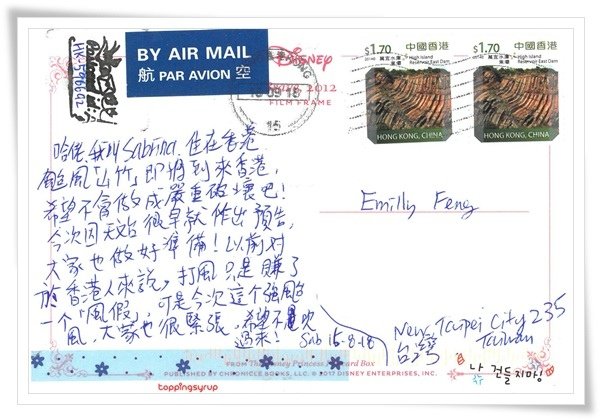 BY AIR MAIL
航 PAR AVION 空
HK-598692
Disney
2012
FILM FRAME
$1.70 中國香港
萬宜水庫
東壩
High Island
Reservoir East Dam
HONG KONG, CHINA
$1.70 中國香港
萬宜水庫
東壩
High Island
Reservoir East Dam
HONG KONG, CHINA
哈佬,我叫Sabrina,住在香港
颱風「山竹」即將到來香港,
希望不會做成嚴重破壞吧!
今次因天文台很早就作出預告,
大家也做好準備!以前对
於香港人來說,打風只是賺了
一个「風假」,可是今次這个強颱
風,大家也很緊張,希望不要吹
過來! Sab 15-8-18
Emilly Feng
New Taipei City 235
Taiwan
台灣
나 건들지마!
FROM The Disney Princess Postcard Box
PUBLISHED BY CHRONICLE BOOKS, LLC. © 2017 DISNEY ENTERPRISES, INC.
toppingsyrup